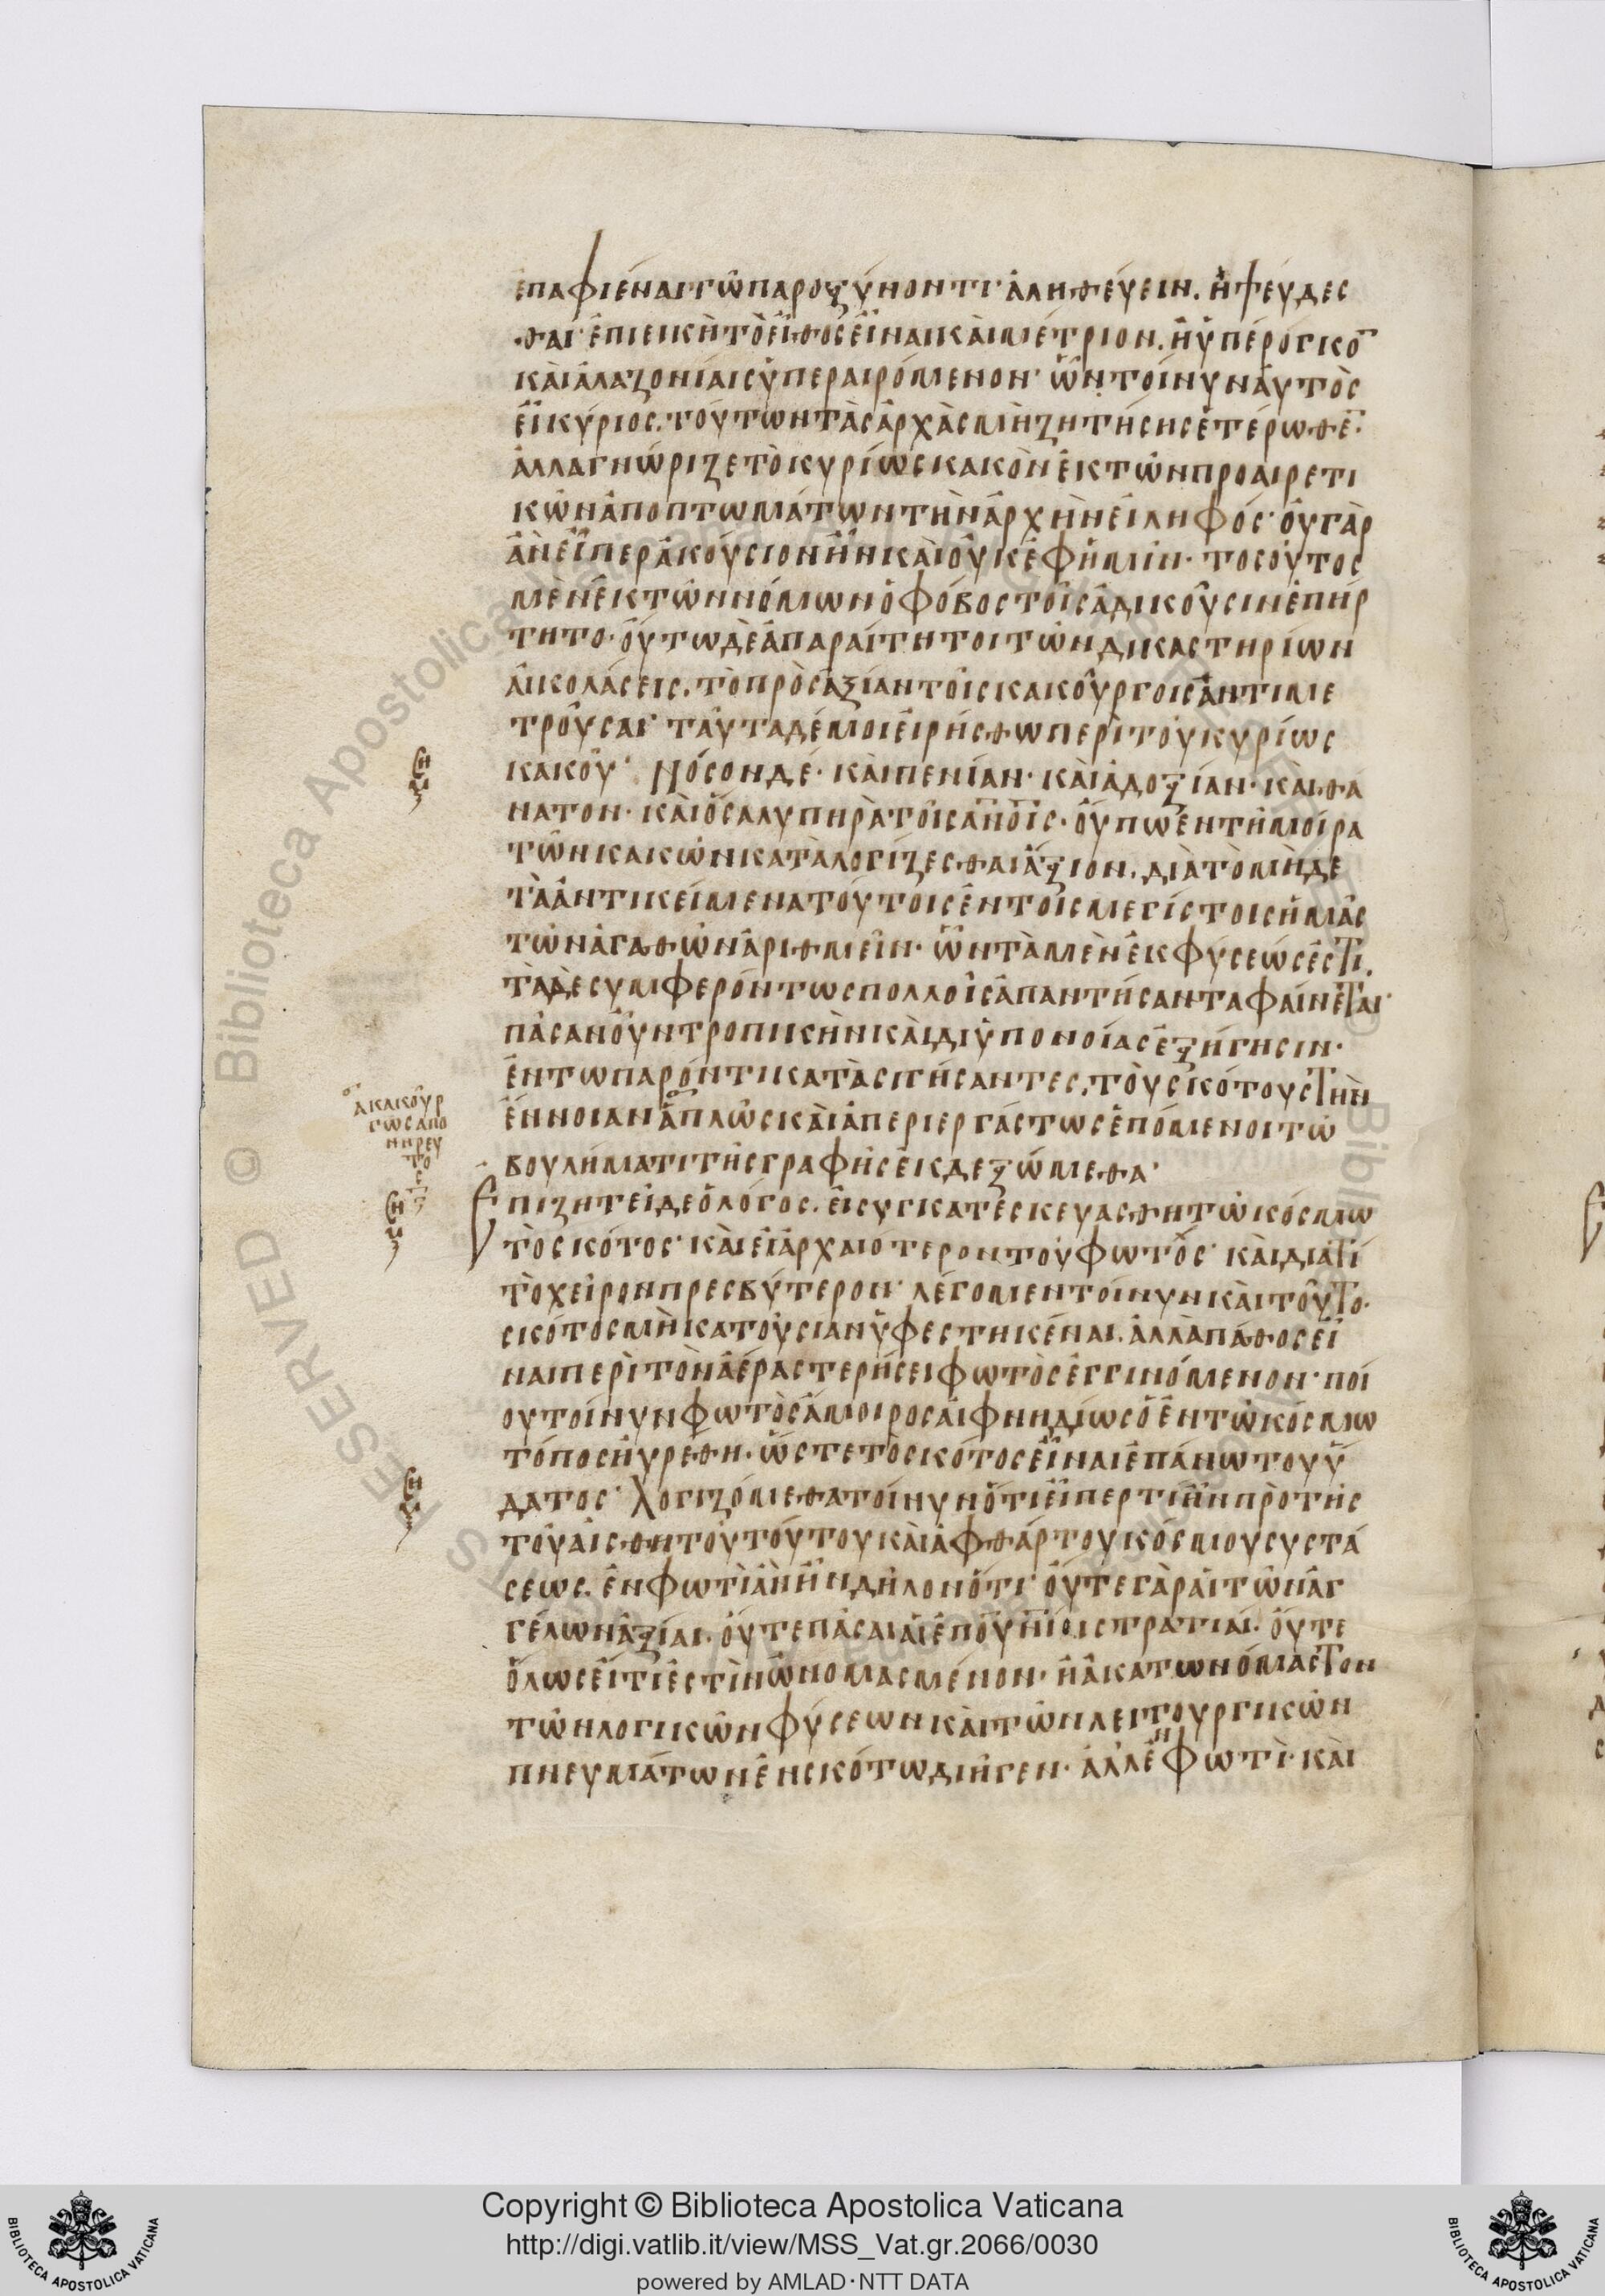 ἐπαφιέναι τῶ παροξύνοντι· ἀληθεύειν. ἢ ψεύδες
θαι· ἐπιεικῆ τὸ εἶθος εἶναι καὶ μέτριον. ἢ ὑπέρογκο̅
καὶ ἀλαζονίαις ὑπεραιρόμενον· ὧν τοίνυν αὐτὸς
εἶ κύριος. τούτων τὰς ἀρχὰς μὴ ζητήσης ἑτέρωθε̅·
ἀλλα γνώριζε τὸ κυρίως κακὸν ἐκ τῶν προαιρετι
κῶν ἀποπτωμάτων τὴν ἀρχὴν εἰληφός· οὐ γὰρ
ἂν εἴπερ ἀκούσιον ἦν καὶ οὐκ ἐφ ἡμῖν· τοσοῦτος
μὲν ἐκ τῶν νόμων ὁ φόβος τοῖς ἀδικοῦσιν ἐπήρ
τητο· οὕτω δὲ ἀπαραίτητοι τῶν δικαστηρίων
αἱ κολάσεις. τὸ πρὸς ἀξίαν τοῖς κακούργοις ἀντιμε
τροῦσαι· ταῦτα δέ μοι εἰρήσθω περὶ τοῦ κυρίως
κακοῦ· Νόσον δέ· καὶ πενίαν· καὶ ἀδοξίαν· καὶ θα
νατον· καὶ ὅσα λυπηρὰ τοῖς α̅ν̅ο̅ις· οὔπω ἐν τῆ μοίρα
τῶν κακῶν καταλογίζεσθαι ἄξιον. διὰ τὸ μὴδε
τὰ ἀντικείμενα τούτοις ἐν τοῖς μεγίστοις ἡμᾶς
τῶν ἀγαθῶν ἀριθμεῖν· ὧν τὰ μὲν ἐκ φύσεώς ἐστι.
τὰ δὲ συμφερόντως πολλοῖς ἀπαντήσαντα φαίνεται·
πᾶσαν οὖν τροπικὴν καὶ δι ὑπονοίας ἐξήγησιν·
ἐν τω παρόντι κατασιγήσαντες. τοῦ σκότους τὴν
ἔννοιαν ἁπλῶς καὶ ἀπεριεργάστως ἑπόμενοι τῶ
βουλήματι τῆς γραφῆς ἐκδεξώμεθα·
Επιζητεῖ δε ὁ λόγος. εἰ συγκατεσκευασθη τῶ κόσμω
τὸ σκότος· καὶ εἰ ἀρχαιοτερον τοῦ φωτός· καὶ διατί
τὸ χεῖρον πρεσβύτερον· λέγομεν τοίνυν καὶ τοῦτο·
σκότος μὴ κατ οὐσιαν ὑφεστηκέναι. ἀλλὰ πάθος εἶ
ναι περὶ τὸν ἀέρα στερήσει φωτὸς ἐγγινόμενον· ποί
ου τοίνυν φωτὸς ἄμοιρος αἰφνηδίως ὁ ἐν τῶ κόσμω
τόπος ηὑρέθη. ὥστε τὸ σκότος εἶναι ἐπάνω του ὕ
δατος· Λογιζόμεθα τοίνυν ὅτι εἴπερ τι ἦν πρὸ τῆς
τοῦ αἰσθητοῦ τούτου καὶ ἀφθάρτου κόσμου συστά
σεως. ἐν φωτὶ ἂν ἦν δηλονότι· οὔτε γὰρ αἱ τῶν ἀγ
γέλων ἀξίαι· οὔτε πᾶσαι αἱ ἐπο̅υ̅ν̅ιοι στρατιαί. οὔτε
ὅλως εἴ τι ἐστὶν ὠνομασμένον· ἢ ἀκατωνόμαστον
τῶν λογικῶν φύσεων καὶ τῶν λειτουργικῶν
πνευμάτων ἐν σκότω διῆγεν· ἀλλ ἐν φωτὶ· καὶ
ὅ
ἀκακούρ
γως απο
κηρευ
το